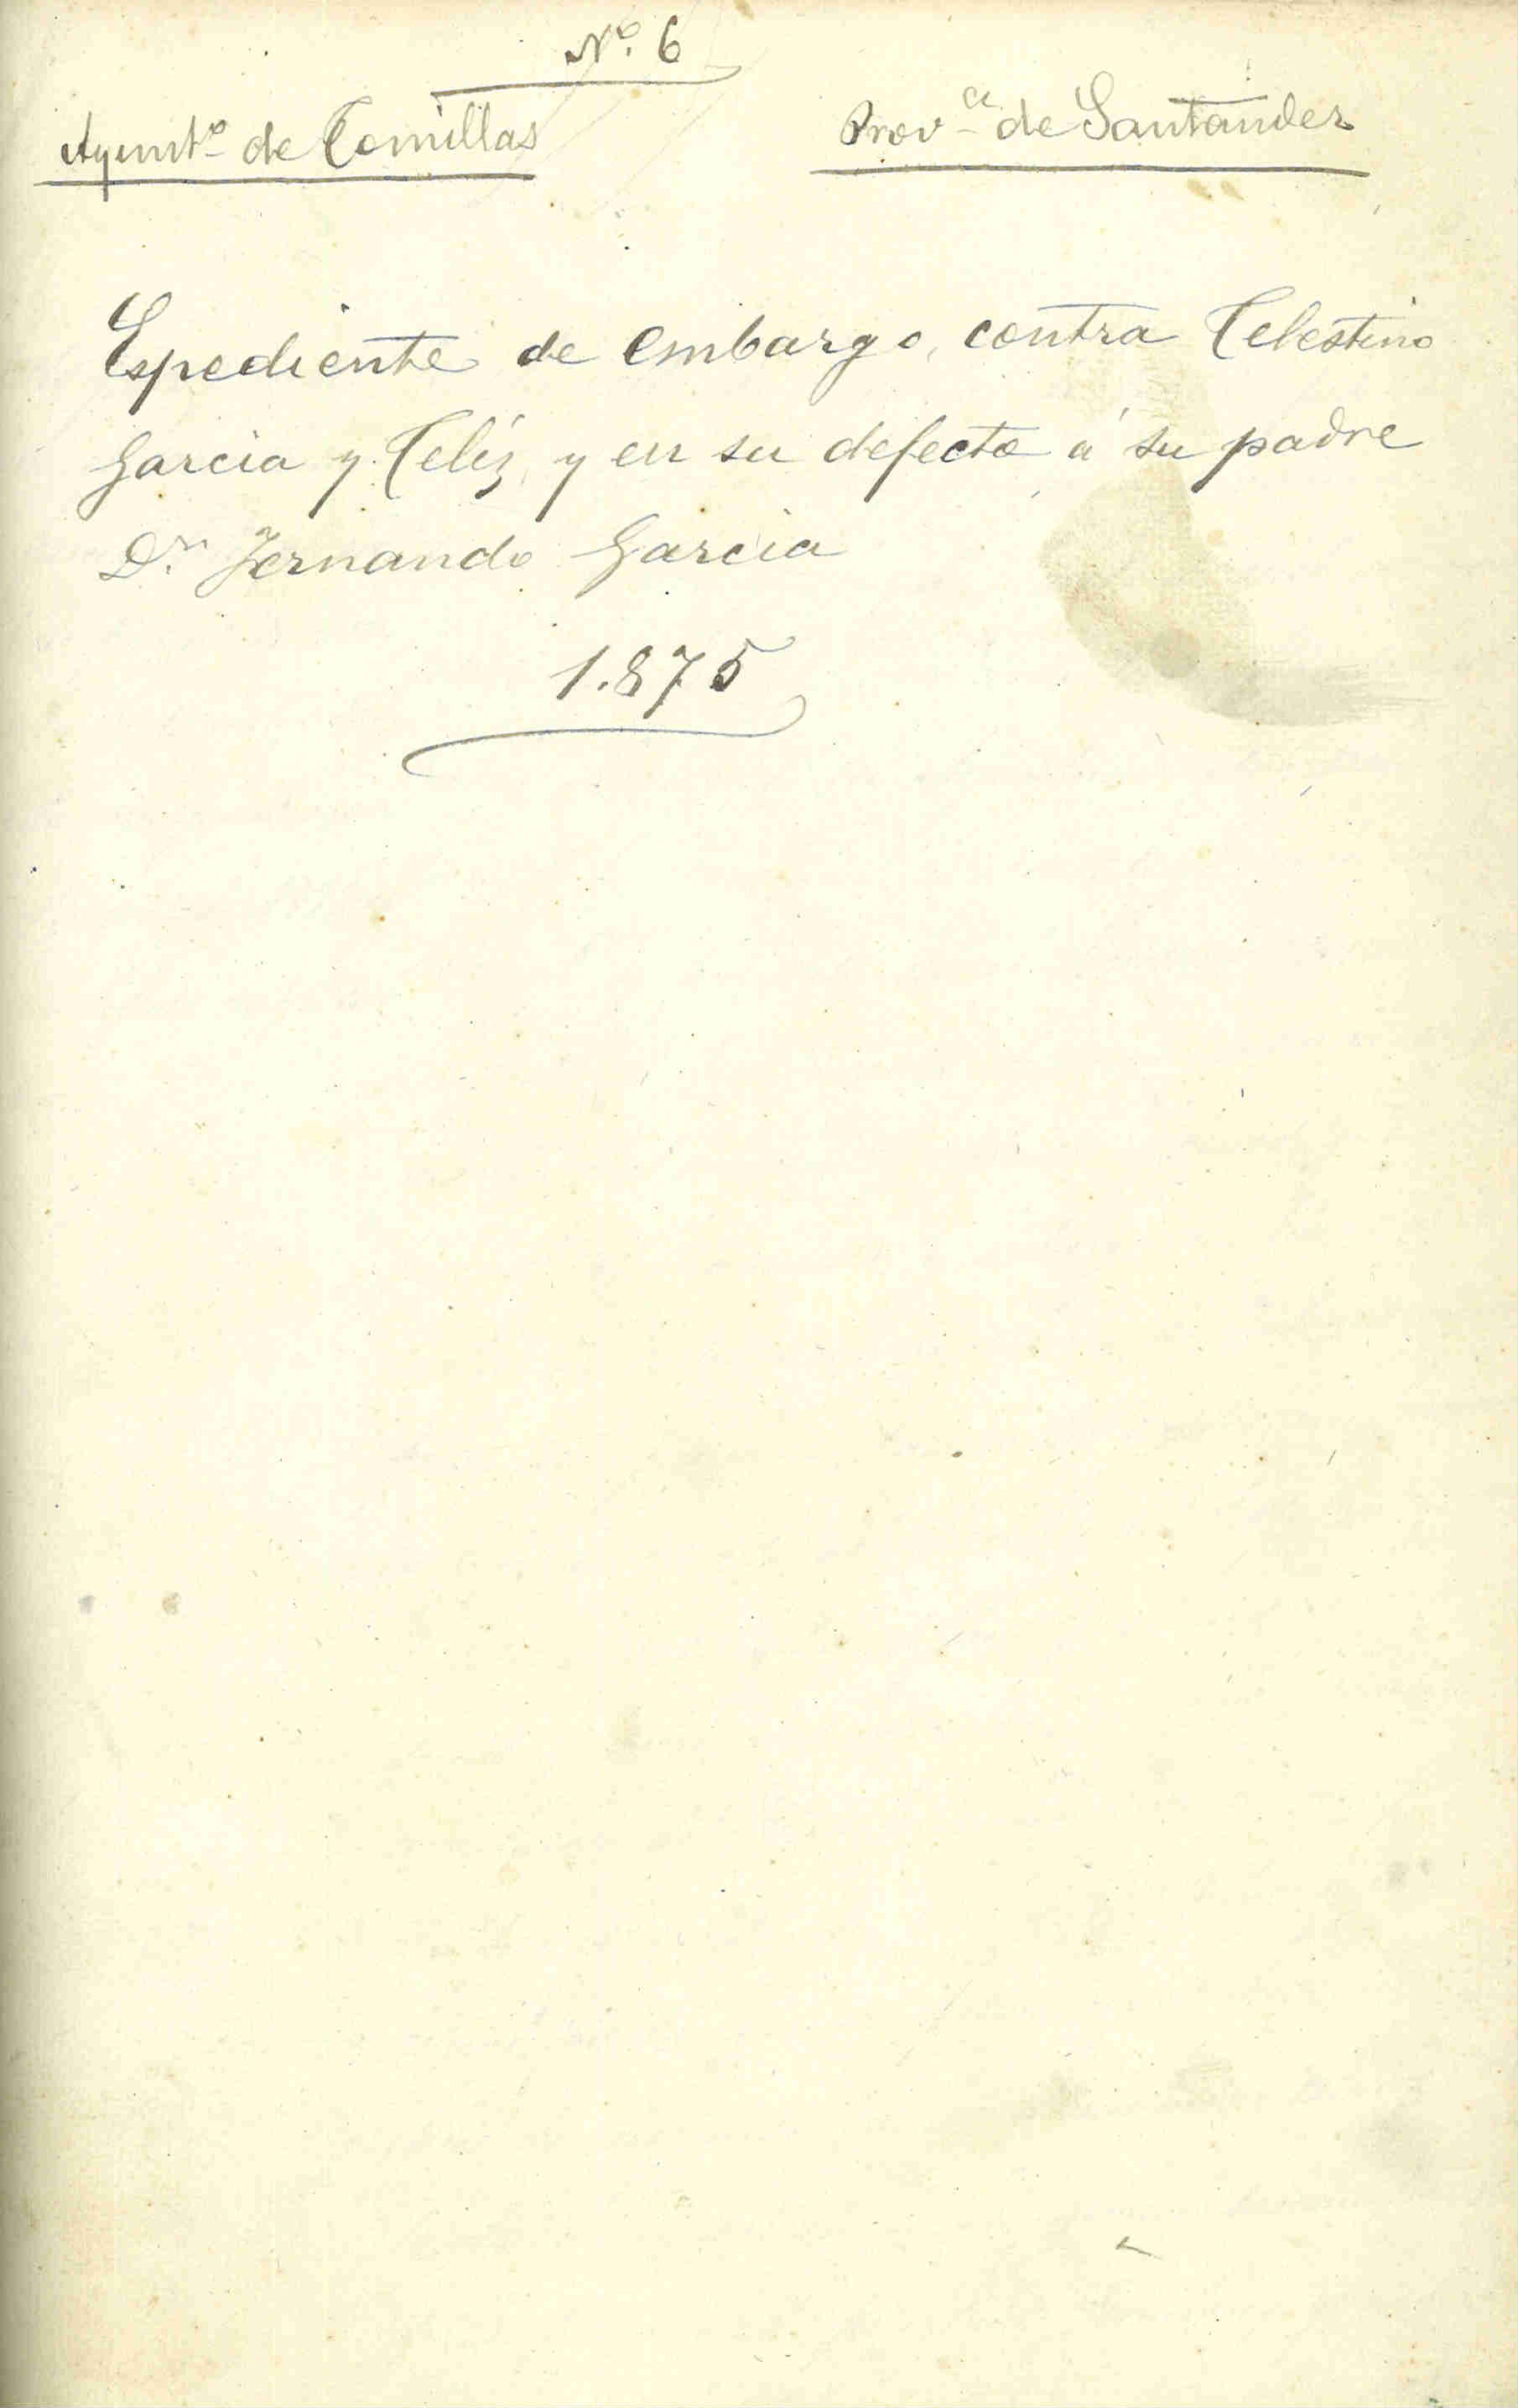 Nº. 6
Ayuntº de Comillas
Provª de Santander
Espediente de embargo, contra Celestino
Garcia y Celíz, y en su defecto á su padre
Dn. Fernando Garcia
1.875